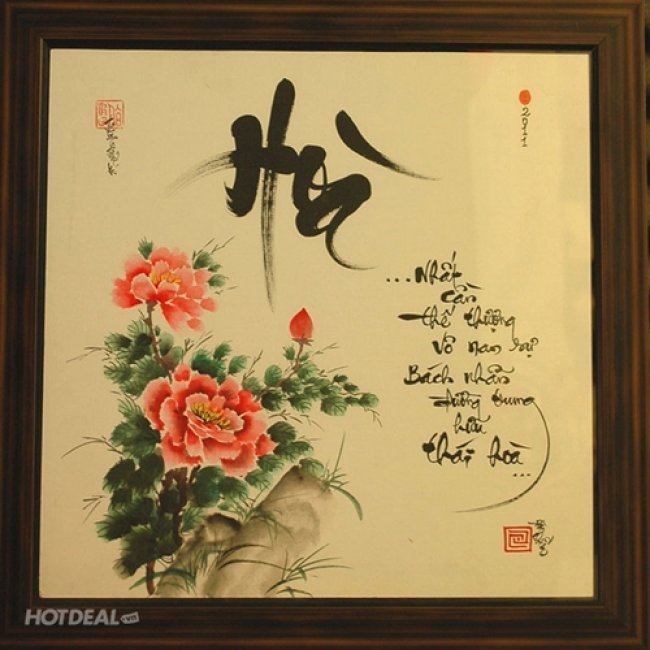 Hoà
2011
...Nhất
cần
thế thượng
vô nan sự
Bách nhẫn
đường trung
hữu
thái hoà
...
HOTDEAL.VN